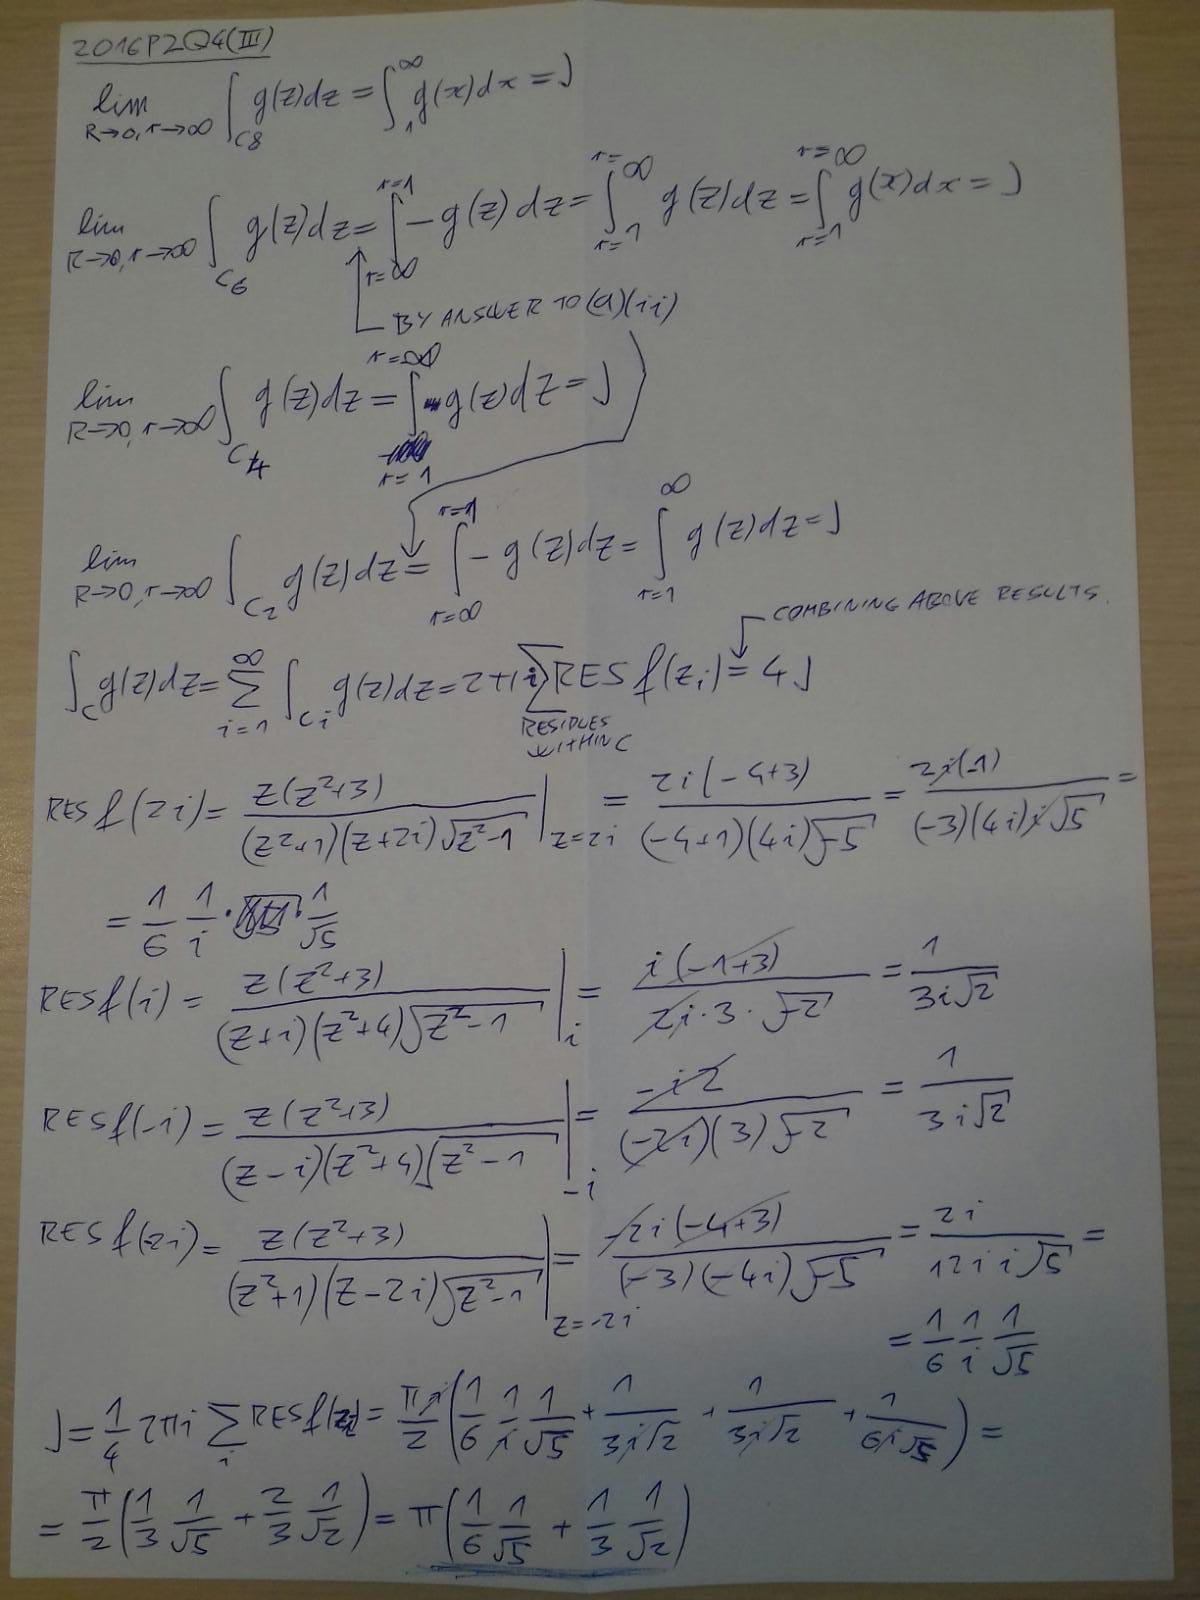 2016P2Q4(III)
lim R→0, r→∞ ∫_C8 g(z)dz = ∫_1^∞ g(x)dx = J
lim R→0, r→∞ ∫_C6 g(z)dz = ∫_{r=∞}^{r=1} -g(z)dz = ∫_{r=1}^{r=∞} g(z)dz = ∫_{r=1}^{r=∞} g(x)dx = J
BY ANSWER TO (a)(ii)
lim R→0, r→∞ ∫_C4 g(z)dz = ∫_{r=1}^{r=∞} g(z)dz = J
lim R→0, r→∞ ∫_C2 g(z)dz = ∫_{r=∞}^{r=1} -g(z)dz = ∫_{r=1}^{∞} g(z)dz = J
COMBINING ABOVE RESULTS.
∫_C g(z)dz = ∑_{i=1}^{∞} ∫_{Ci} g(z)dz = 2πi ∑ RES f(z_i) = 4J
RESIDUES WITHIN C
RES f(2i) = z(z²+3) / (z²+1)(z+2i)√(z²-1) |_{z=2i} = 2i(-4+3) / (-4+1)(4i)√-5 = 2i(-1) / (-3)(4i)i√5 =
= 1/6 1/i · 1/√5
RES f(i) = z(z²+3) / (z+i)(z²+4)√(z²-1) |_i = i(-1+3) / 2i·3·√-2 = 1 / 3i√2
RES f(-i) = z(z²+3) / (z-i)(z²+4)√(z²-1) |_{-i} = -i2 / (-2i)(3)√-2 = 1 / 3i√2
RES f(-2i) = z(z²+3) / (z²+1)(z-2i)√(z²-1) |_{z=-2i} = -2i(-4+3) / (-3)(-4i)√-5 = 2i / 12i i√5 =
= 1/6 1/i 1/√5
J = 1/4 2πi ∑_i RES f(z_i) = πi/2 (1/6 1/i 1/√5 + 1/3i√2 + 1/3i√2 + 1/6i√5) =
= π/2 (1/3 1/√5 + 2/3 1/√2) = π(1/6 1/√5 + 1/3 1/√2)